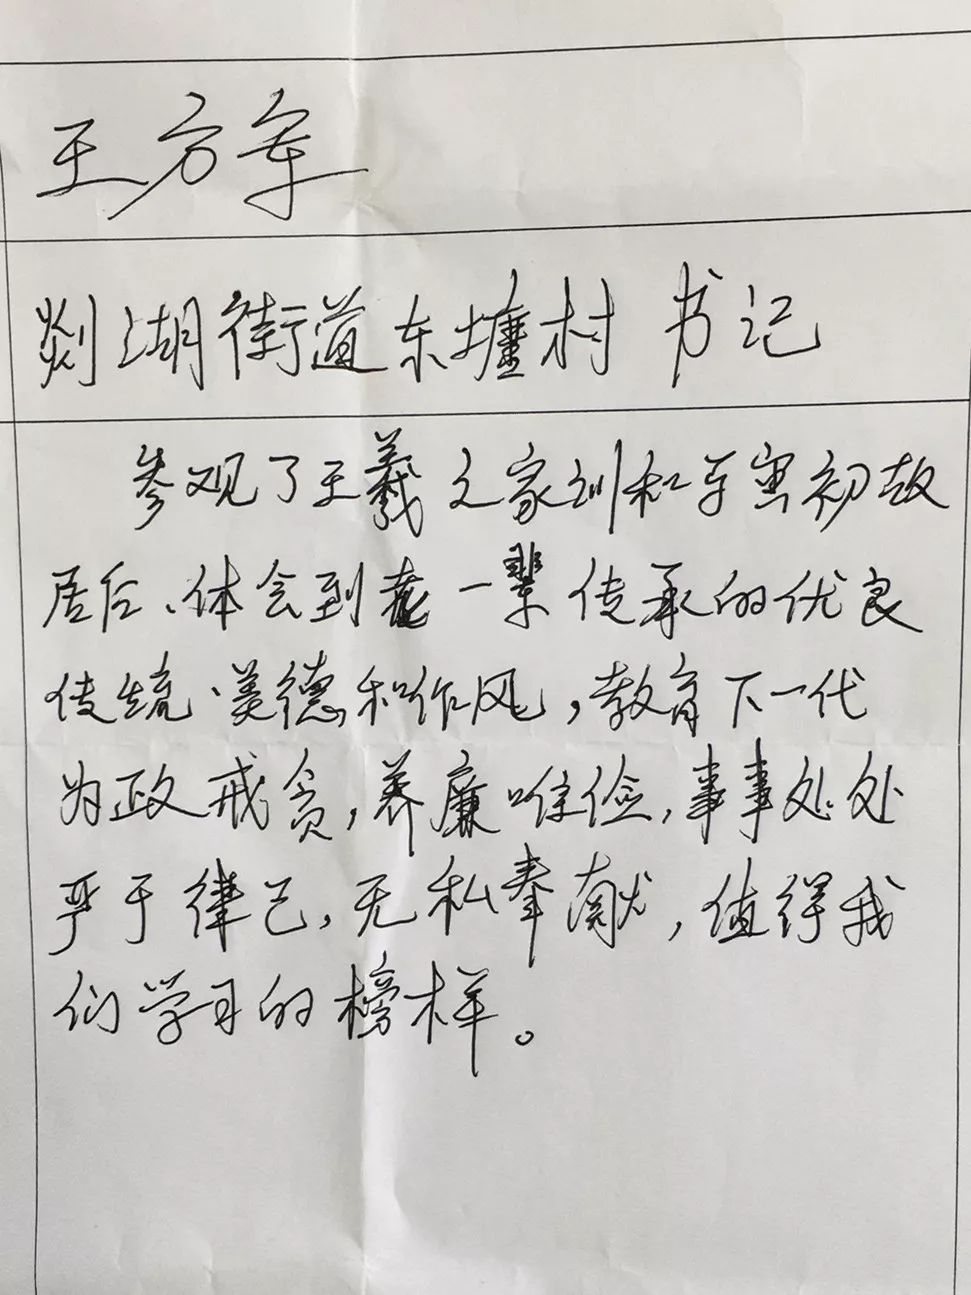 王方军
剡湖街道东塘村 书记
参观了王羲之家训和马寅初故
居后、体会到老一辈传承的优良
传统、美德和作风，教育下一代
为政戒贪，养廉唯俭，事事处处
严于律己，无私奉献，值得我
们学习的榜样。